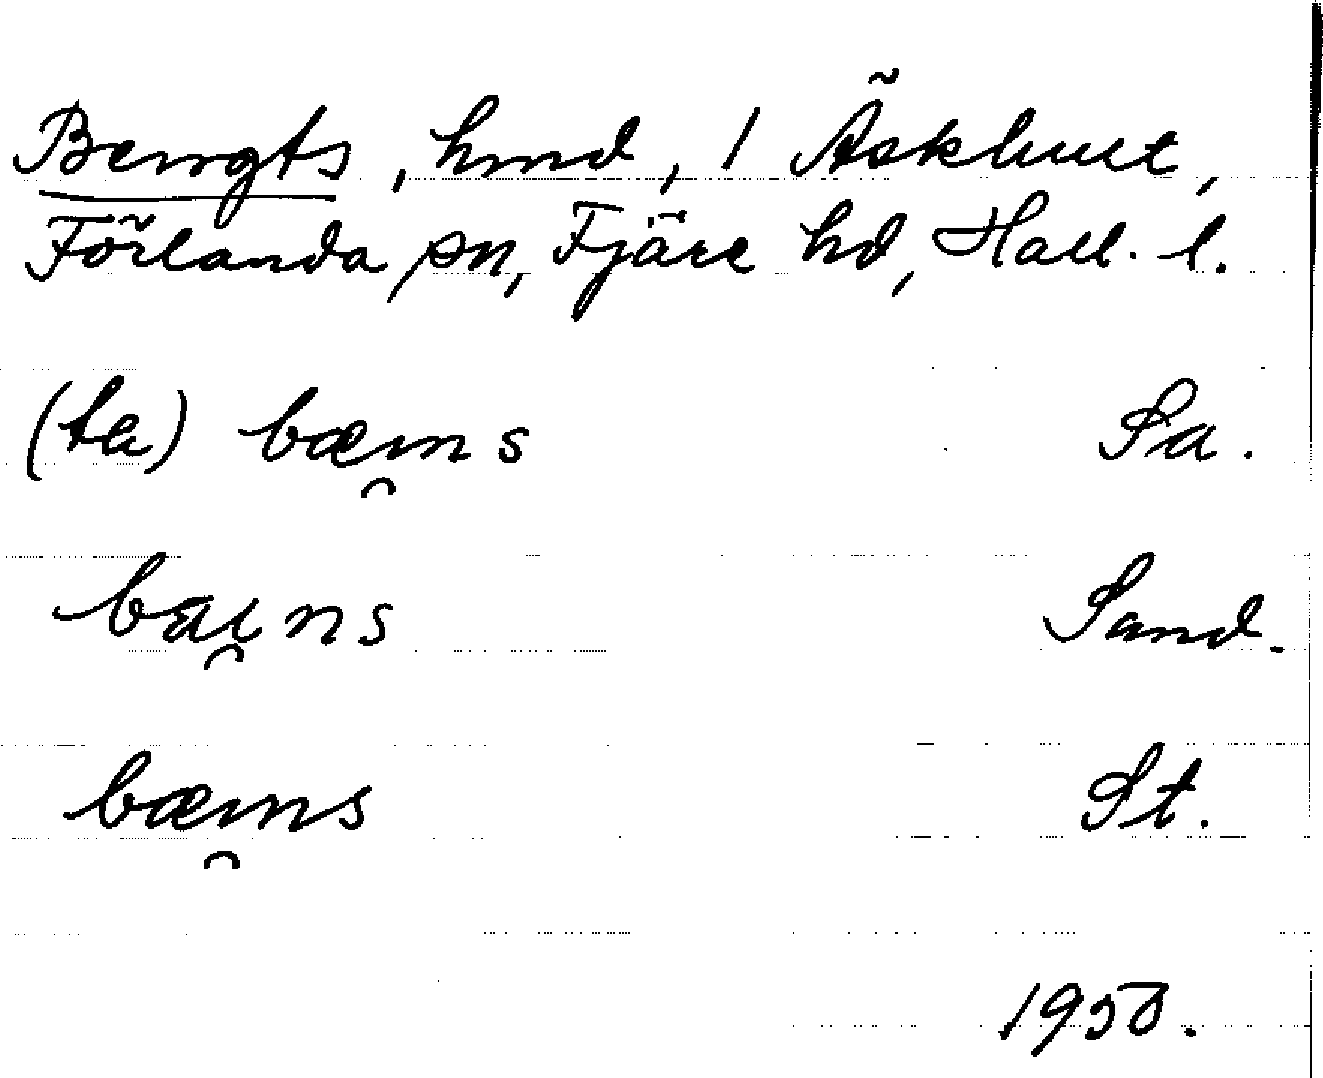 Bengts, hmd, 1 Äskhult,
Förlanda sn, Fjäre hd, Hall. l.
(ta) bæi̯ns Sa.
bæi̯ns Sand.
bæi̯ns St.
1950.